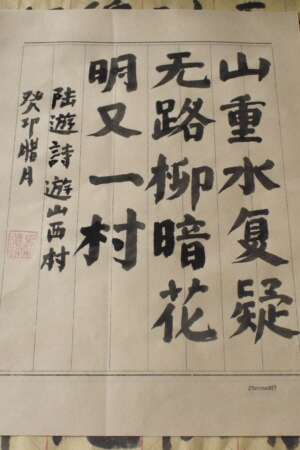 山重水复疑
无路柳暗花
明又一村
陆遊詩遊山西村
癸卯腊月